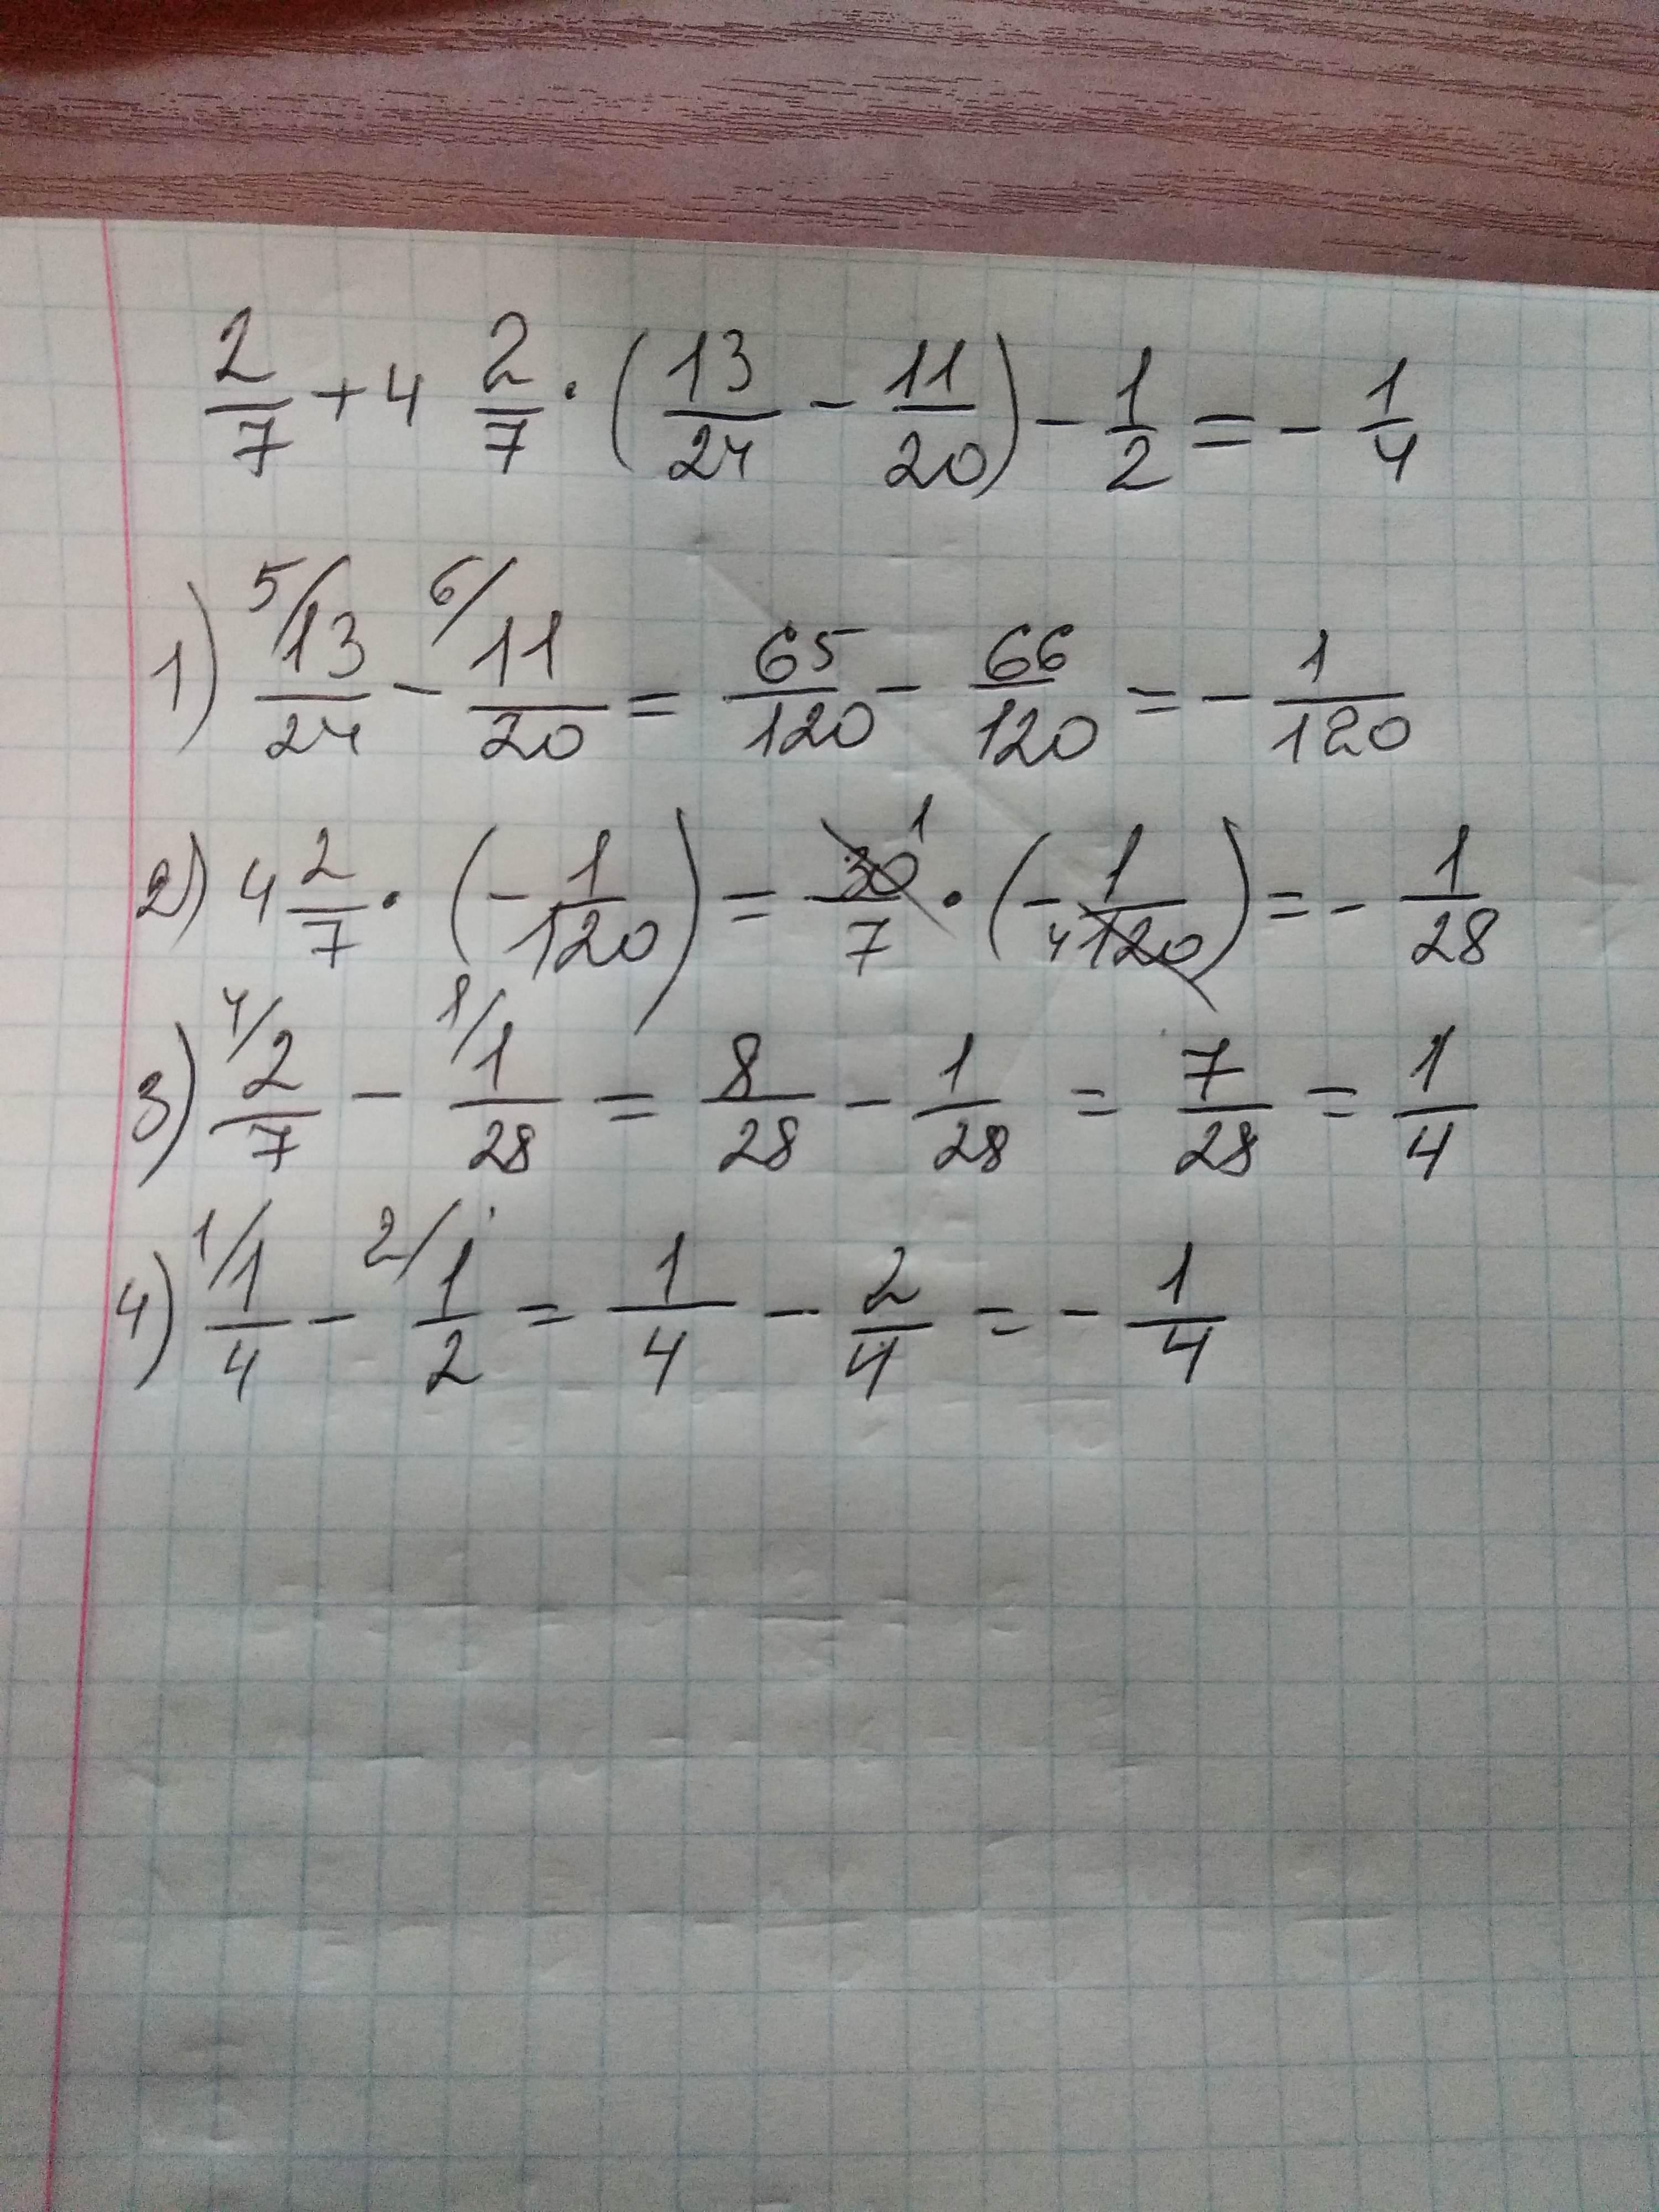 2/7 + 4 2/7 · (13/24 - 11/20) - 1/2 = - 1/4
1) 5/ 13/24 - 6/ 11/20 = 65/120 - 66/120 = - 1/120
2) 4 2/7 · (- 1/120) = 30 1/7 · (- 1/4 120) = - 1/28
3) 4/ 2/7 - 1/ 1/28 = 8/28 - 1/28 = 7/28 = 1/4
4) 1/ 1/4 - 2/ 1/2 = 1/4 - 2/4 = - 1/4